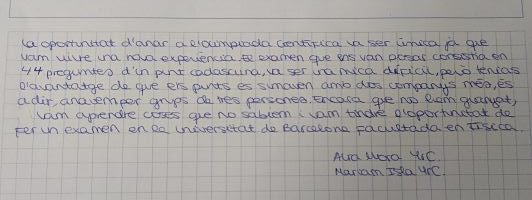 La oportunitat d'anar a l'olimpíada científica va ser única ja que
vam viure una nova experiència. El examen que ens van posar consistia en
44 preguntes d'un punt cadascuna, va ser una mica difícil, però tenies
l'avantatge de que els punts es sumaven amb dos companys més, és
a dir, anavem per grups de tres persones. Encara que no hem guanyat,
vam aprendre coses que no sabiem i vam tindre l'oportunitat de
fer un examen en la universitat de Barcelona facultada en física
Aura Mora 4rC.
Mariam Isla 4rC.